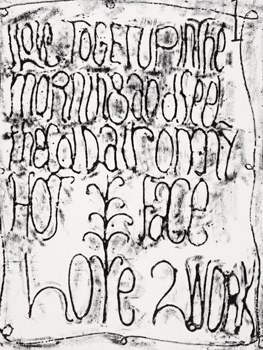 I LOVE TO GET UP IN The
MORNING and FEEL
the COLD air ON MY
HOT FACE
LOVe 2 WORK